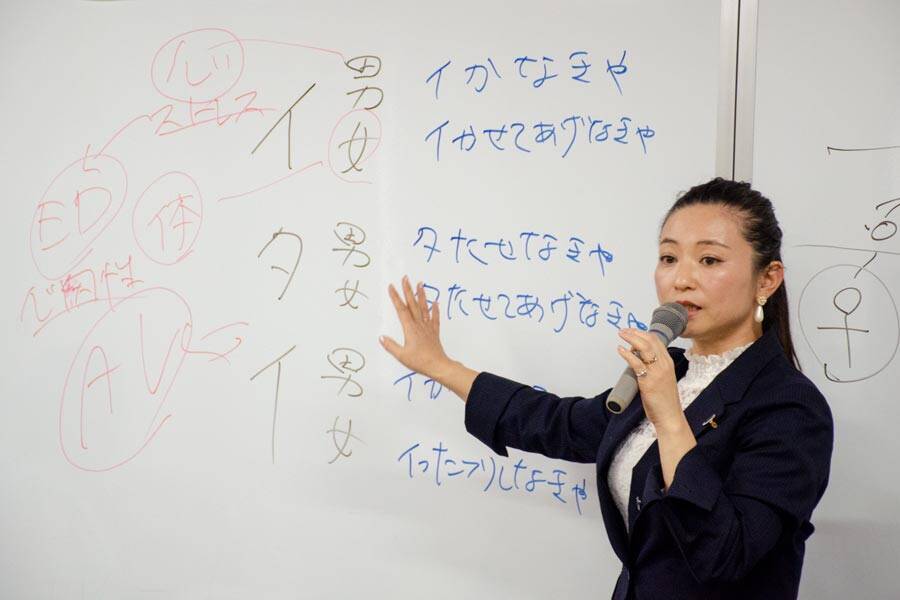 心
ストレス
ED
体
心因性
AV
イ
男 イかなきゃ
女 イかせてあげなきゃ
タ
男 タたせなきゃ
女 タたせてあげなきゃ
イ
男 イか
女 イったフリしなきゃ
♀